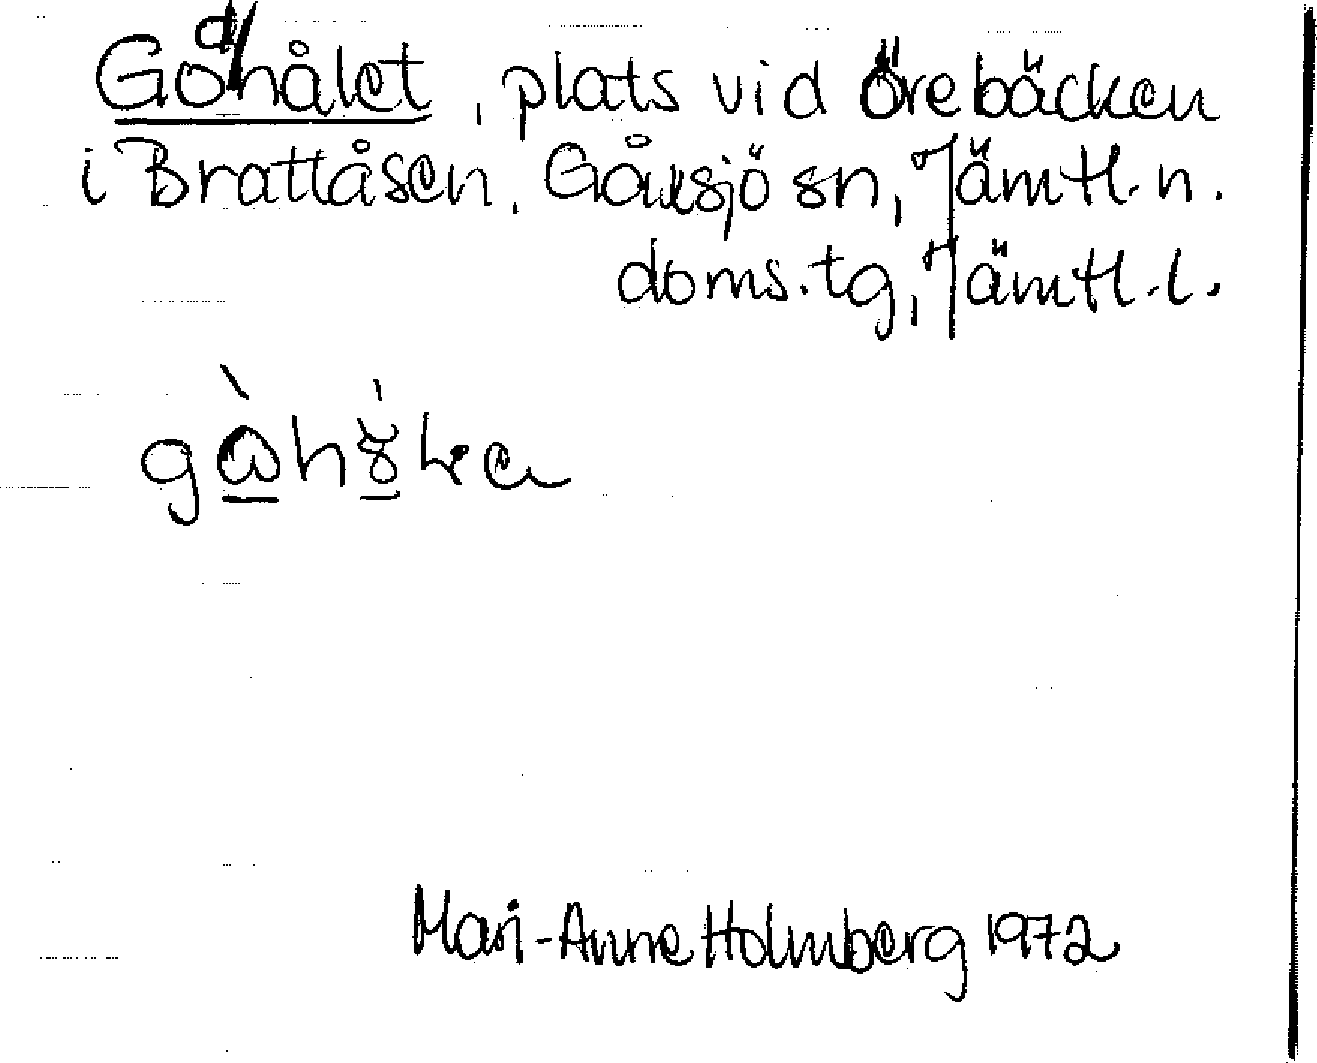 Godhålet, plats vid Örebäcken
i Brattåsen, Gåxsjö sn, Jämtl. n.
doms. tg, Jämtl. l.
Mari-Anne Holmberg 1972